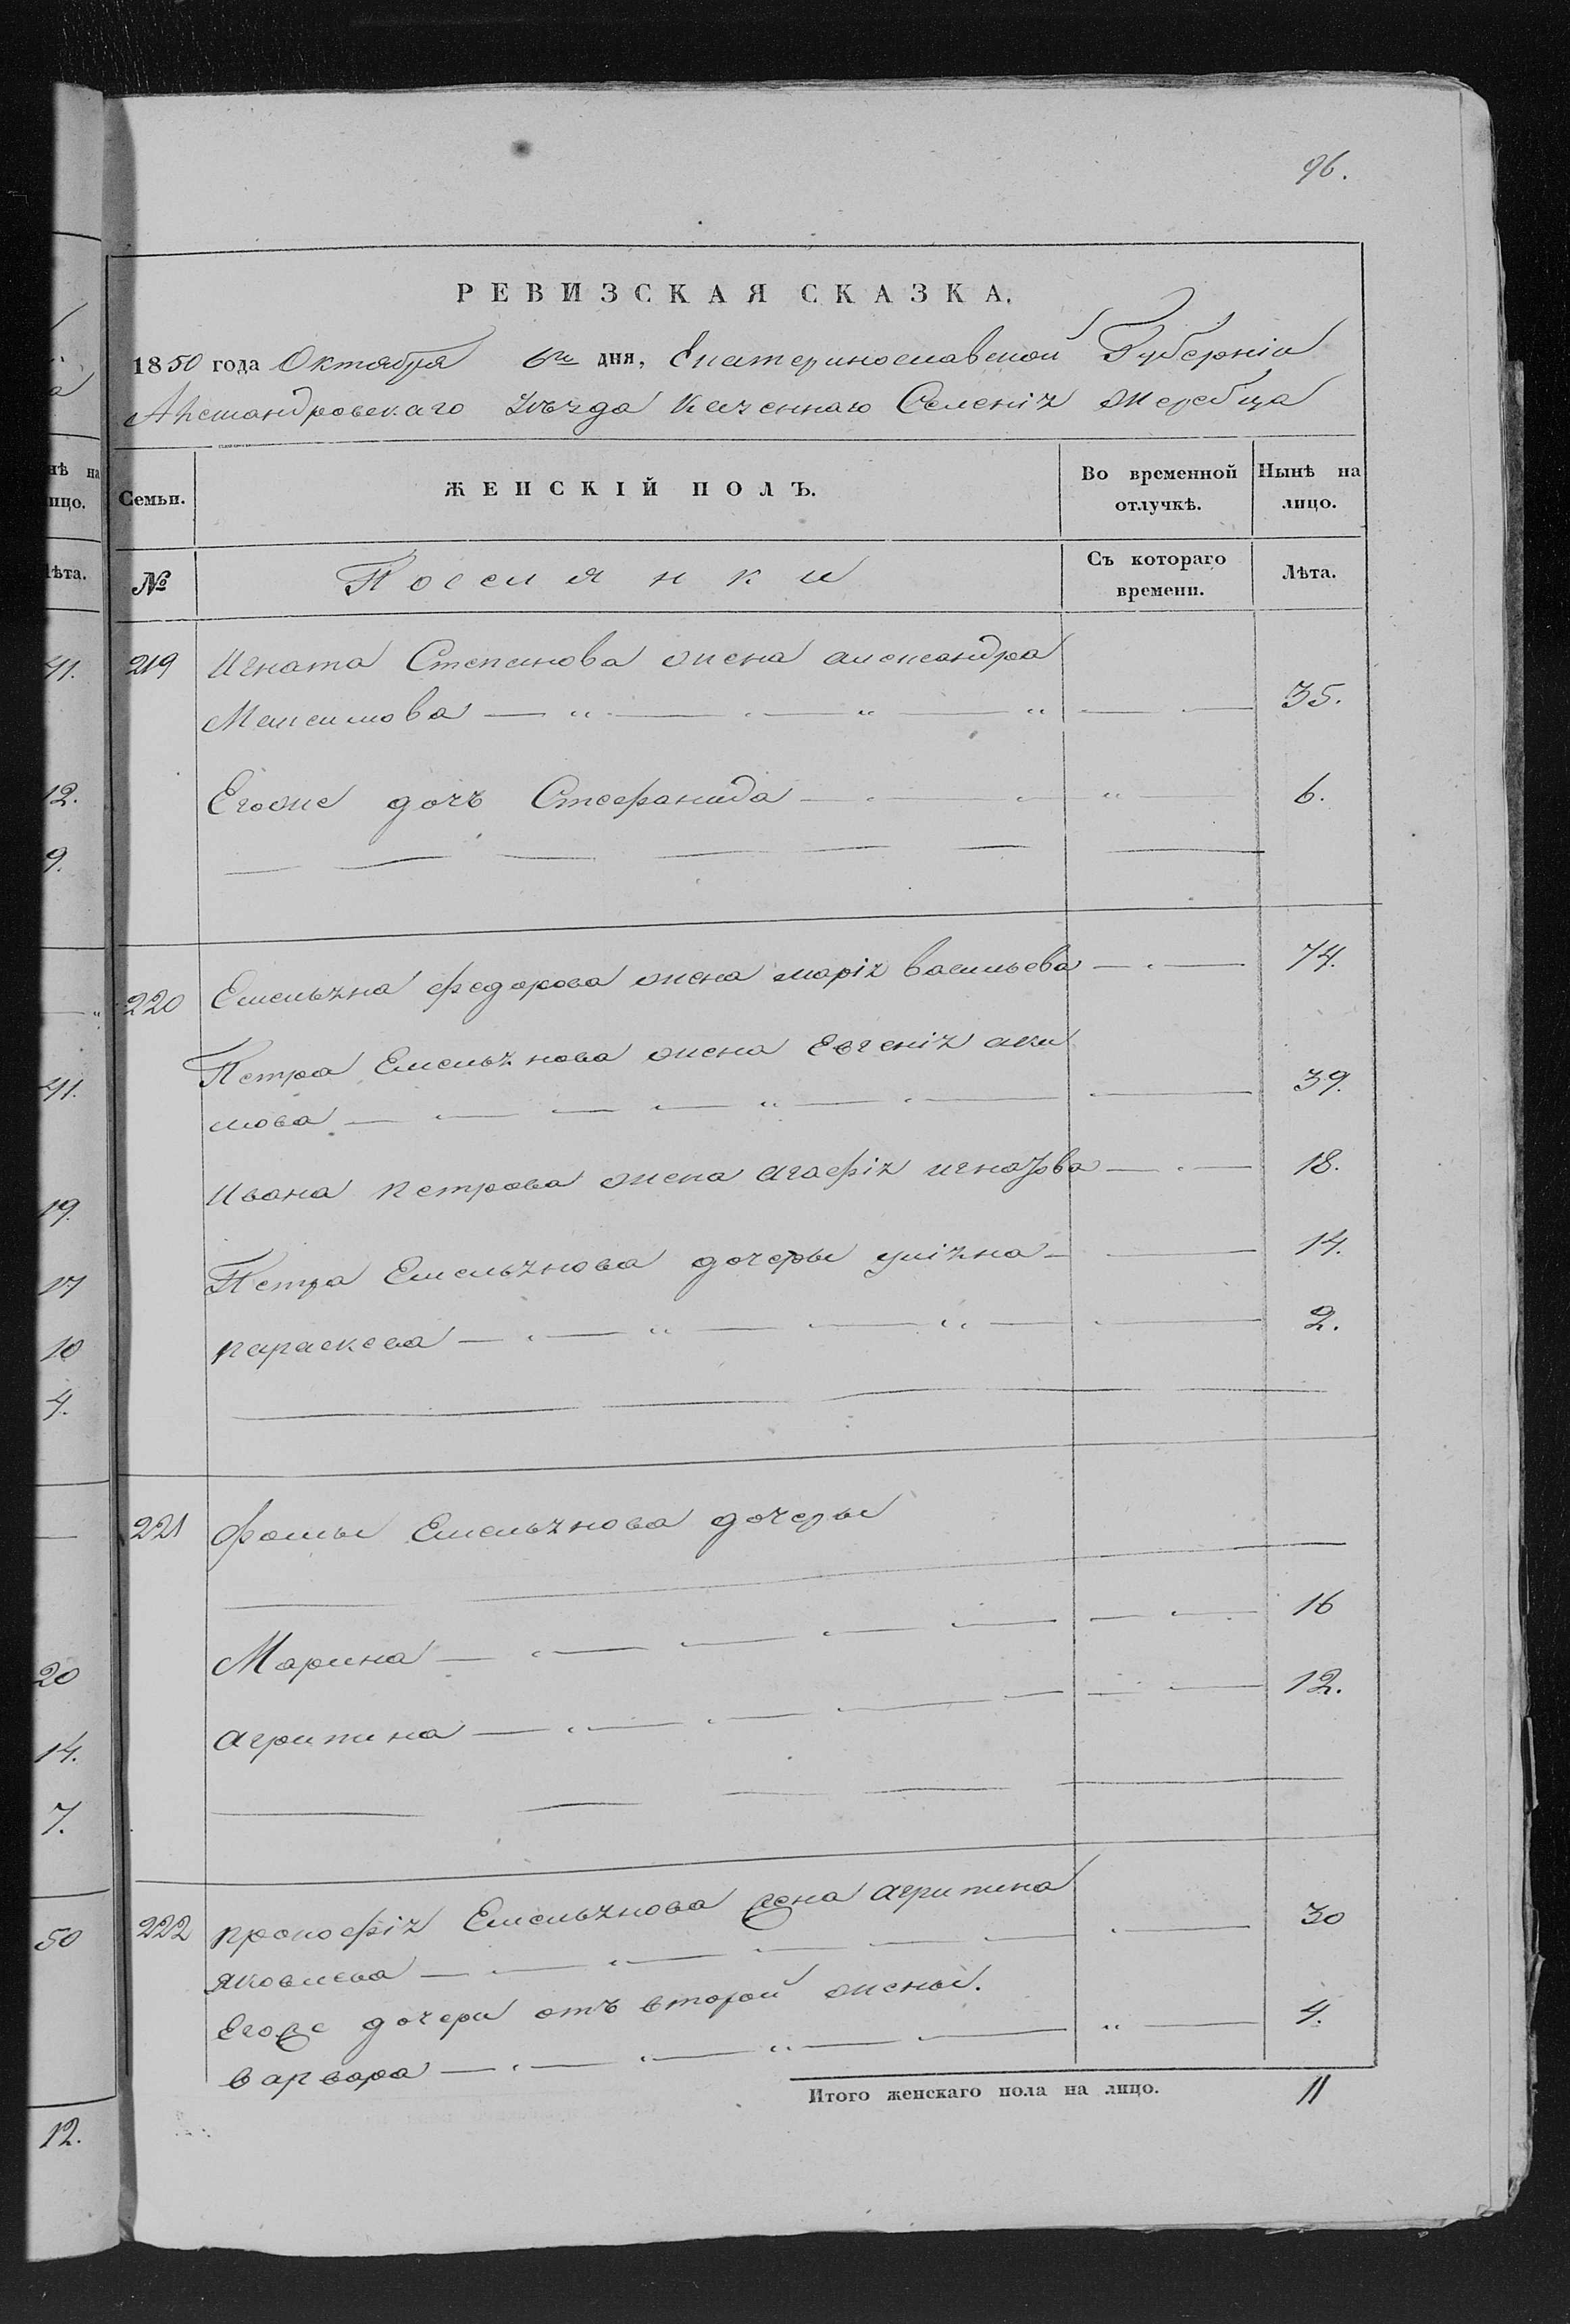 96.
РЕВИЗСКАЯ СКАЗКА.
1850 года Октября 6го дня, Екатеринославской Губерніи
Александровскаго Уѣзда Казеннаго Селенія Жеребца
нѣ на
лицо.
Семьи.
ЖЕНСКІЙ ПОЛЪ.
Во временной отлучкѣ.
Нынѣ на лицо.
лѣта.
№
Поселянки
Съ котораго времени.
Лѣта.
41.
219 Игната Степанова жена александра
Максимова — " — " — " — 35.
12.
Егоже дочь Стефанида — " — 6.
9.
220 Емельяна федорова жена марія васильева — 74.
Петра Емельянова жена Евгенія аки
41.
мова — " — 39.
Ивана петрова жена агафія игнатова — 18.
19.
Петра Емельянова дочеры уліяна — 14.
17
параскева — " — " — 2.
10
4.
221 фомы Емельянова дочеры
Марина — 16
20
агрипина — 12.
14.
7.
222 прокофія Емельянова жена агрипина
50
яковлева — 30
Егоже дочери отъ второй жены.
варвара — " — 4.
Итого женскаго пола на лицо. 11
12.